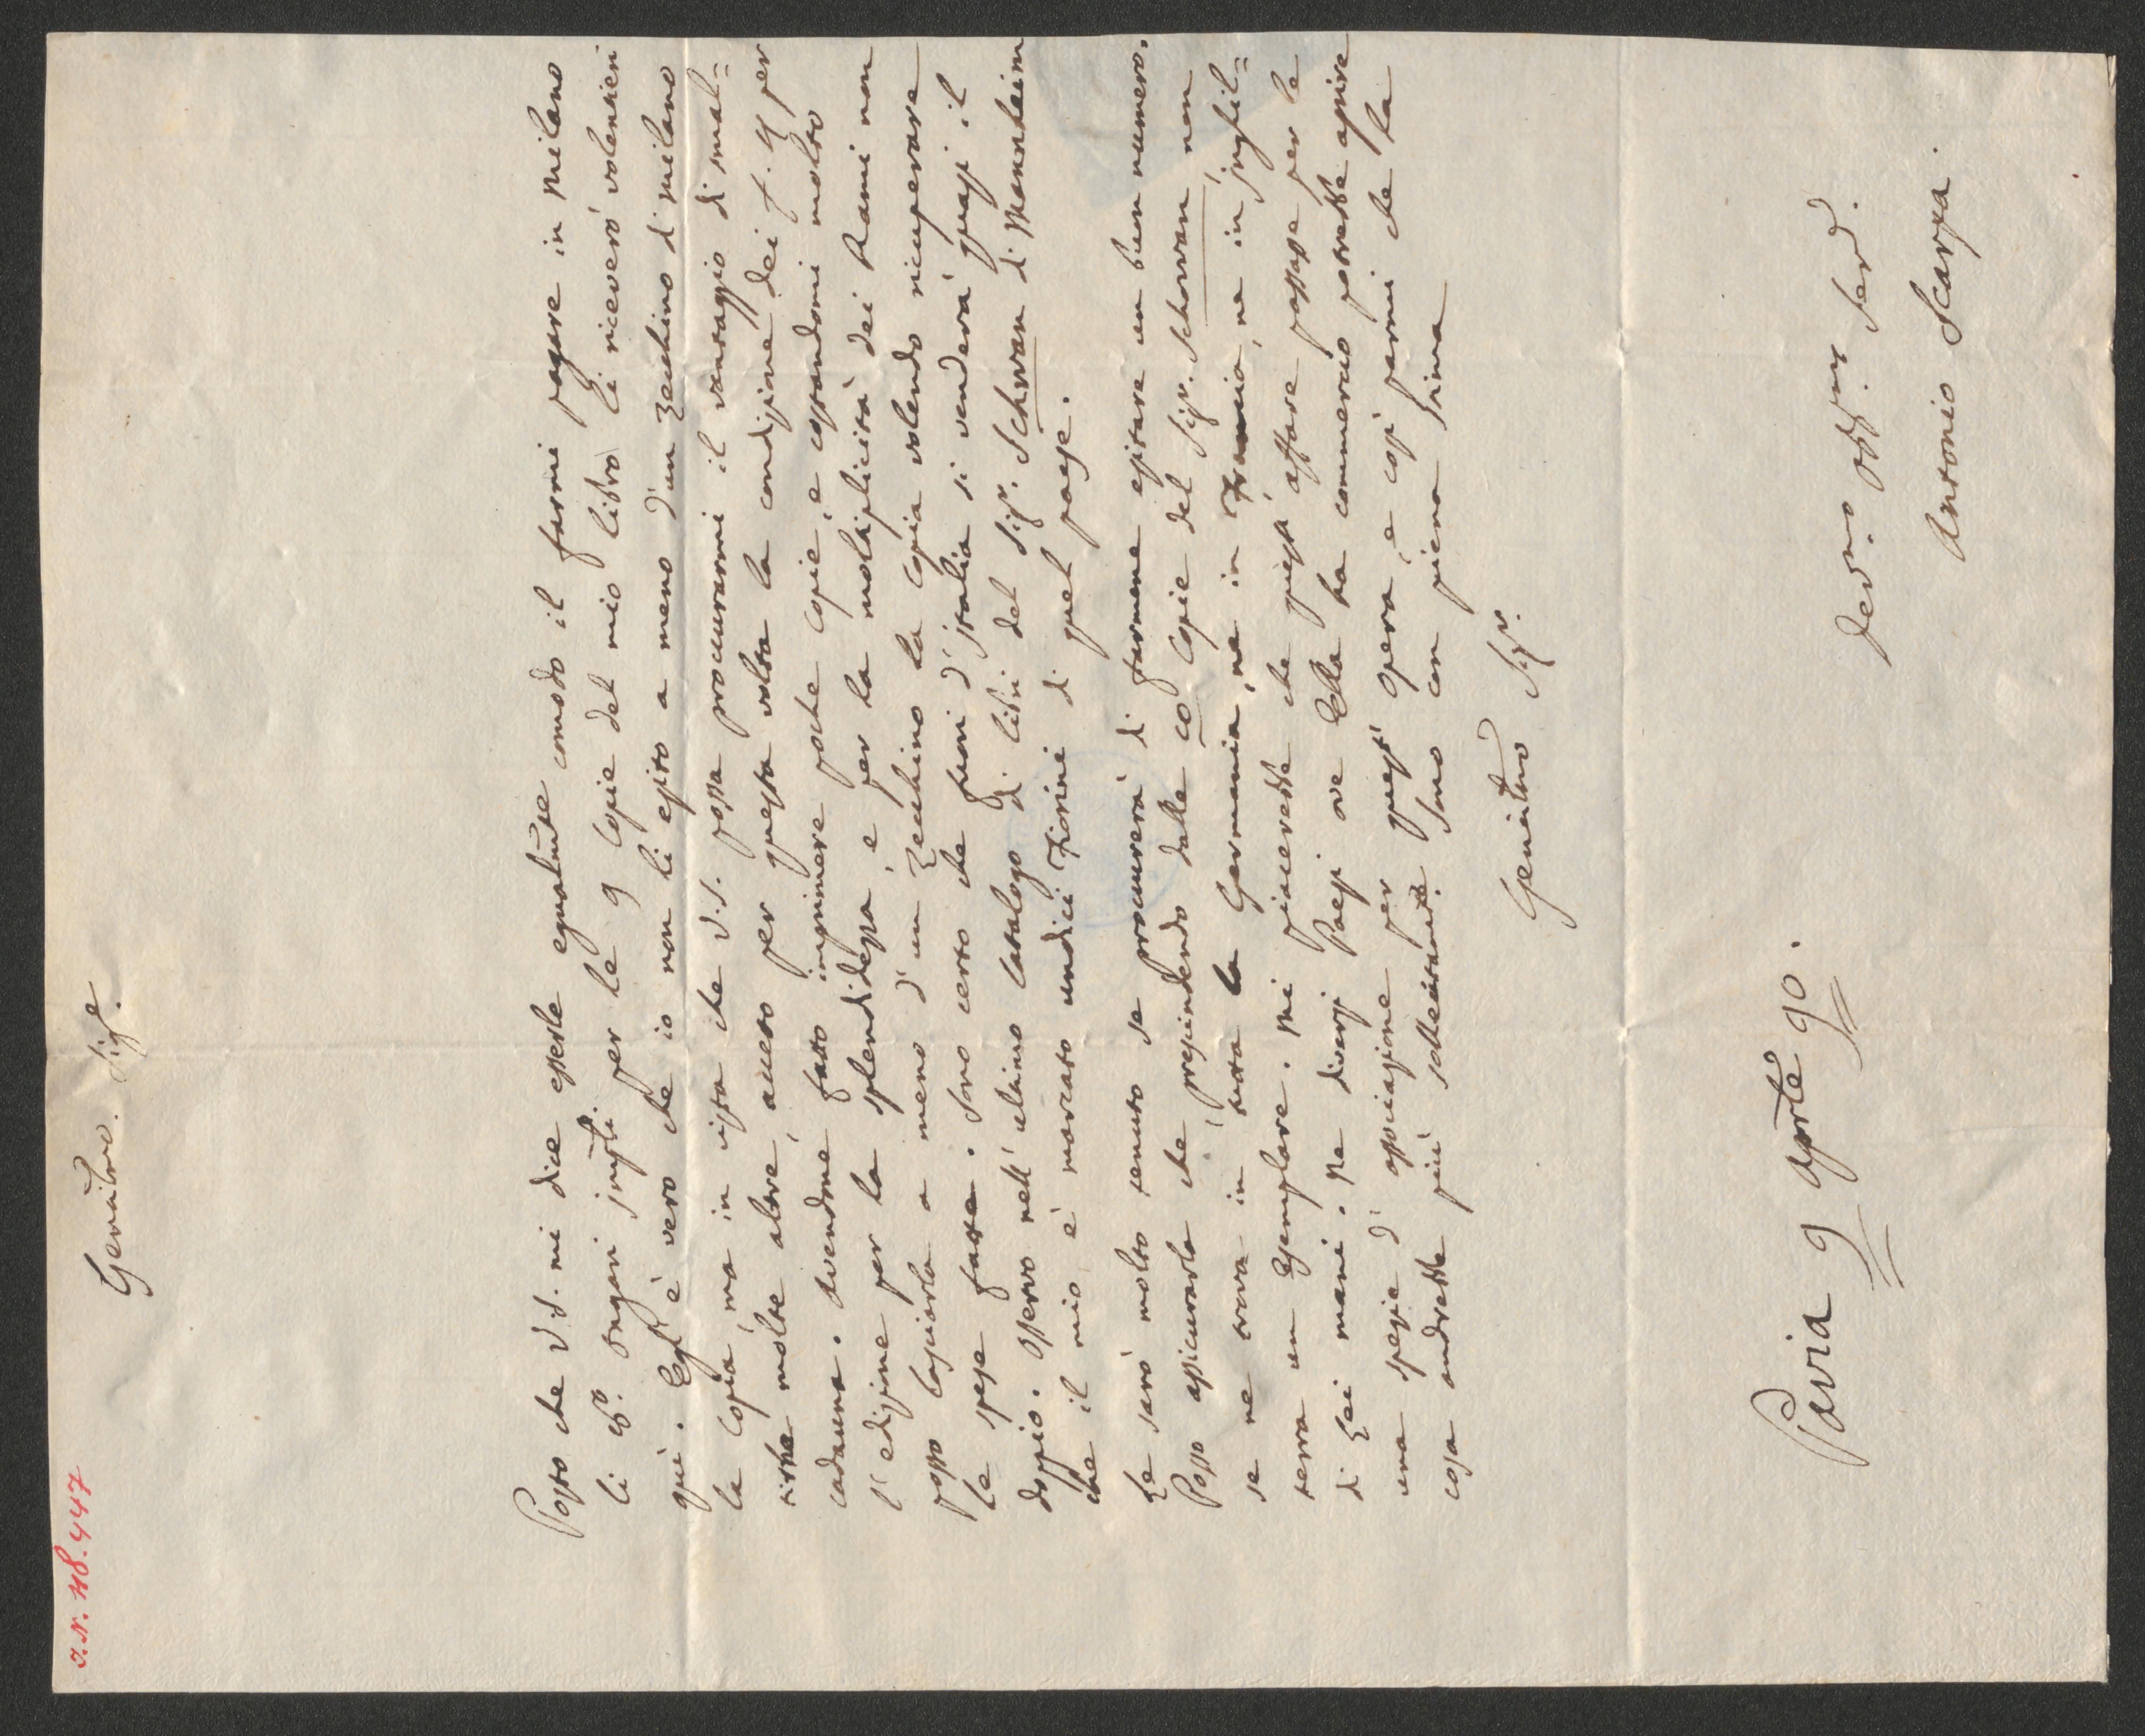 J.N. 118.447
Genäᵗmo. Sigʳᵉ.
Posto che V.S. mi dice essere egualm̄te comodo il farmi pagare in Milano
li Ongari per le 9 Copie del mio libro li riceverò volentieri
qui. Egl' è vero che io non li esito a meno d'un Zecchino di Milano
la Copia, ma in vista che V.S. possa procurarmi il vantaggio di smal=
tirne molte altre, accetto per questa volta la condizione dei f. 4 per
cadauna. Avendone fatto imprimere poche Copie, e costandomi molto
l'edizione per la splendidezza, e per la moltiplicità dei Rami non
posso lasciarla a meno d'un Zecchino la Copia volendo ricuperare
le spese fatte. Sono certo che fuori d'Italia si venderà quasi il
doppio. Osservo nell' ultimo Catalogo di libri del Sigʳ. Schwan di Mannheim
che il mio è marcato undici Fiorini di quel paese.
Le sarò molto tenuto se procurerà di farmene esitare un buon numero.
Posso assicurarla che, prescindendo dalle Copie del Sigʳ. Schowan non
se ne trova in tutta la Germania, ne in Francia, ne in Inghil=
terra un Esemplare. Mi piacerebbe che quest' affare passasse per le
di Lei mani. Ne diversi Paesi ove Ella ha commercio potrebbe aprire
una spezie d' associazione per quest' opera, e così parmi che la
cosa andrebbe più sollecitam̄te. Sono con piena stima
Genäᵗmo Sigʳ.
Pavia 9 Aprile 90.
Devᵐᵒ. Obbᵐᵒ Serᵉ.
Antonio Scarpa.